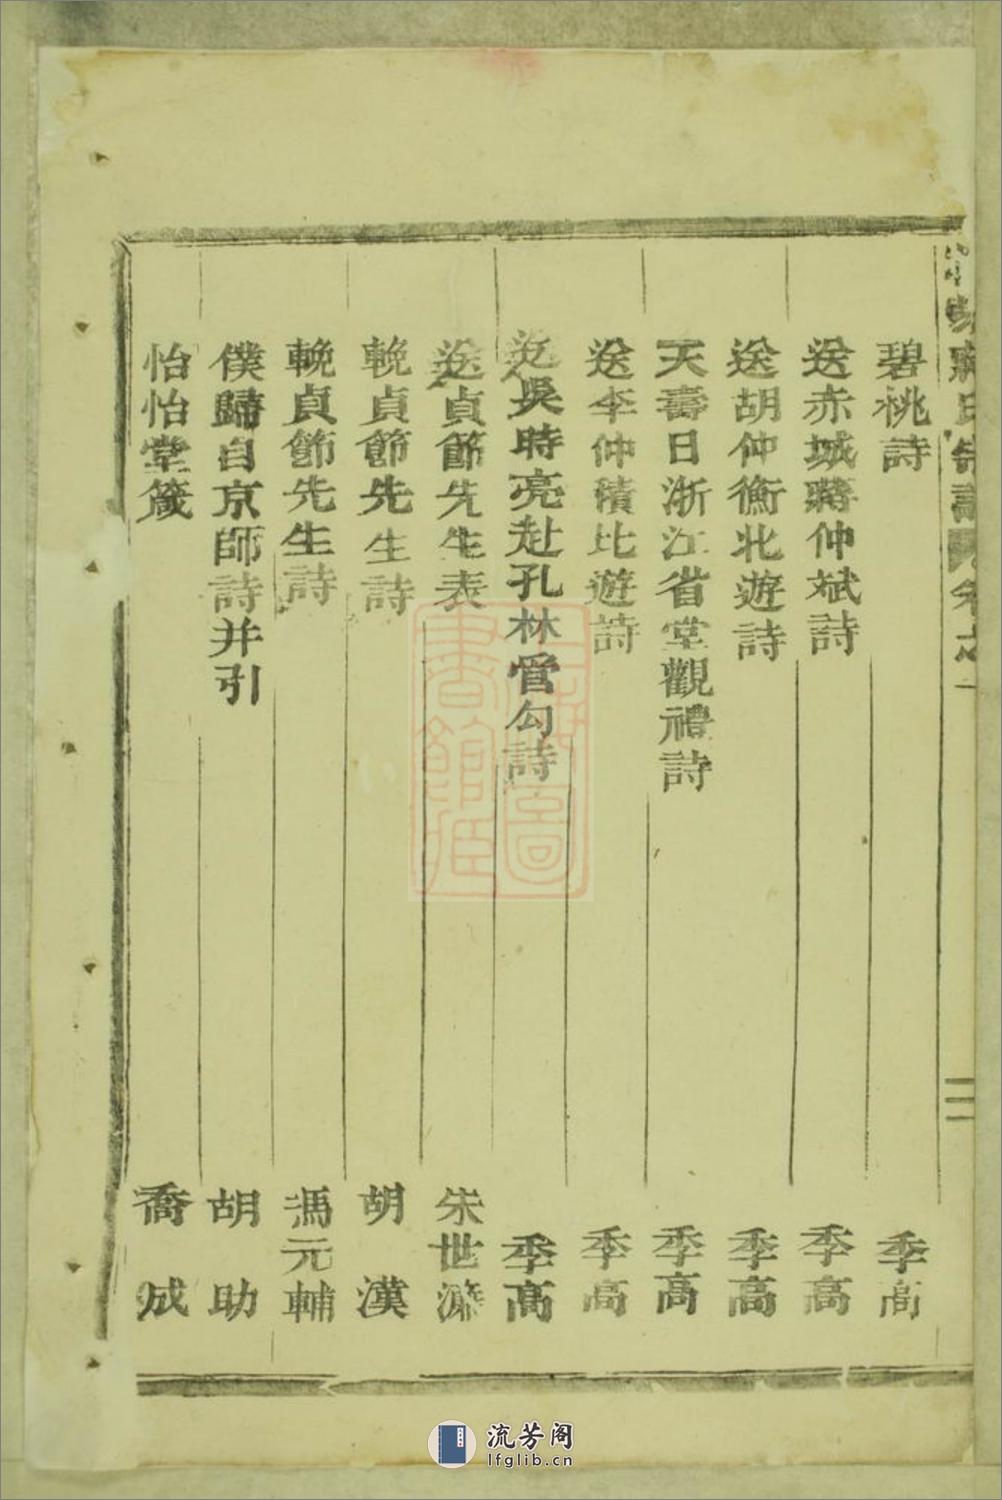 蔣氏宗譜 卷之一
二
碧桃詩 季高
送赤城蔣仲斌詩 季高
送胡仲衡北遊詩 季高
天壽日浙江省堂觀禮詩 季高
送李仲積北遊詩 季高
送吳時亮赴孔林管勾詩 季高
送貞節先生表 朱世濂
輓貞節先生詩 胡漢
輓貞節先生詩 馮元輔
僕歸自京師詩并引 胡助
怡怡堂箴 喬成
上海圖書館藏
流芳阁
lfglib.cn